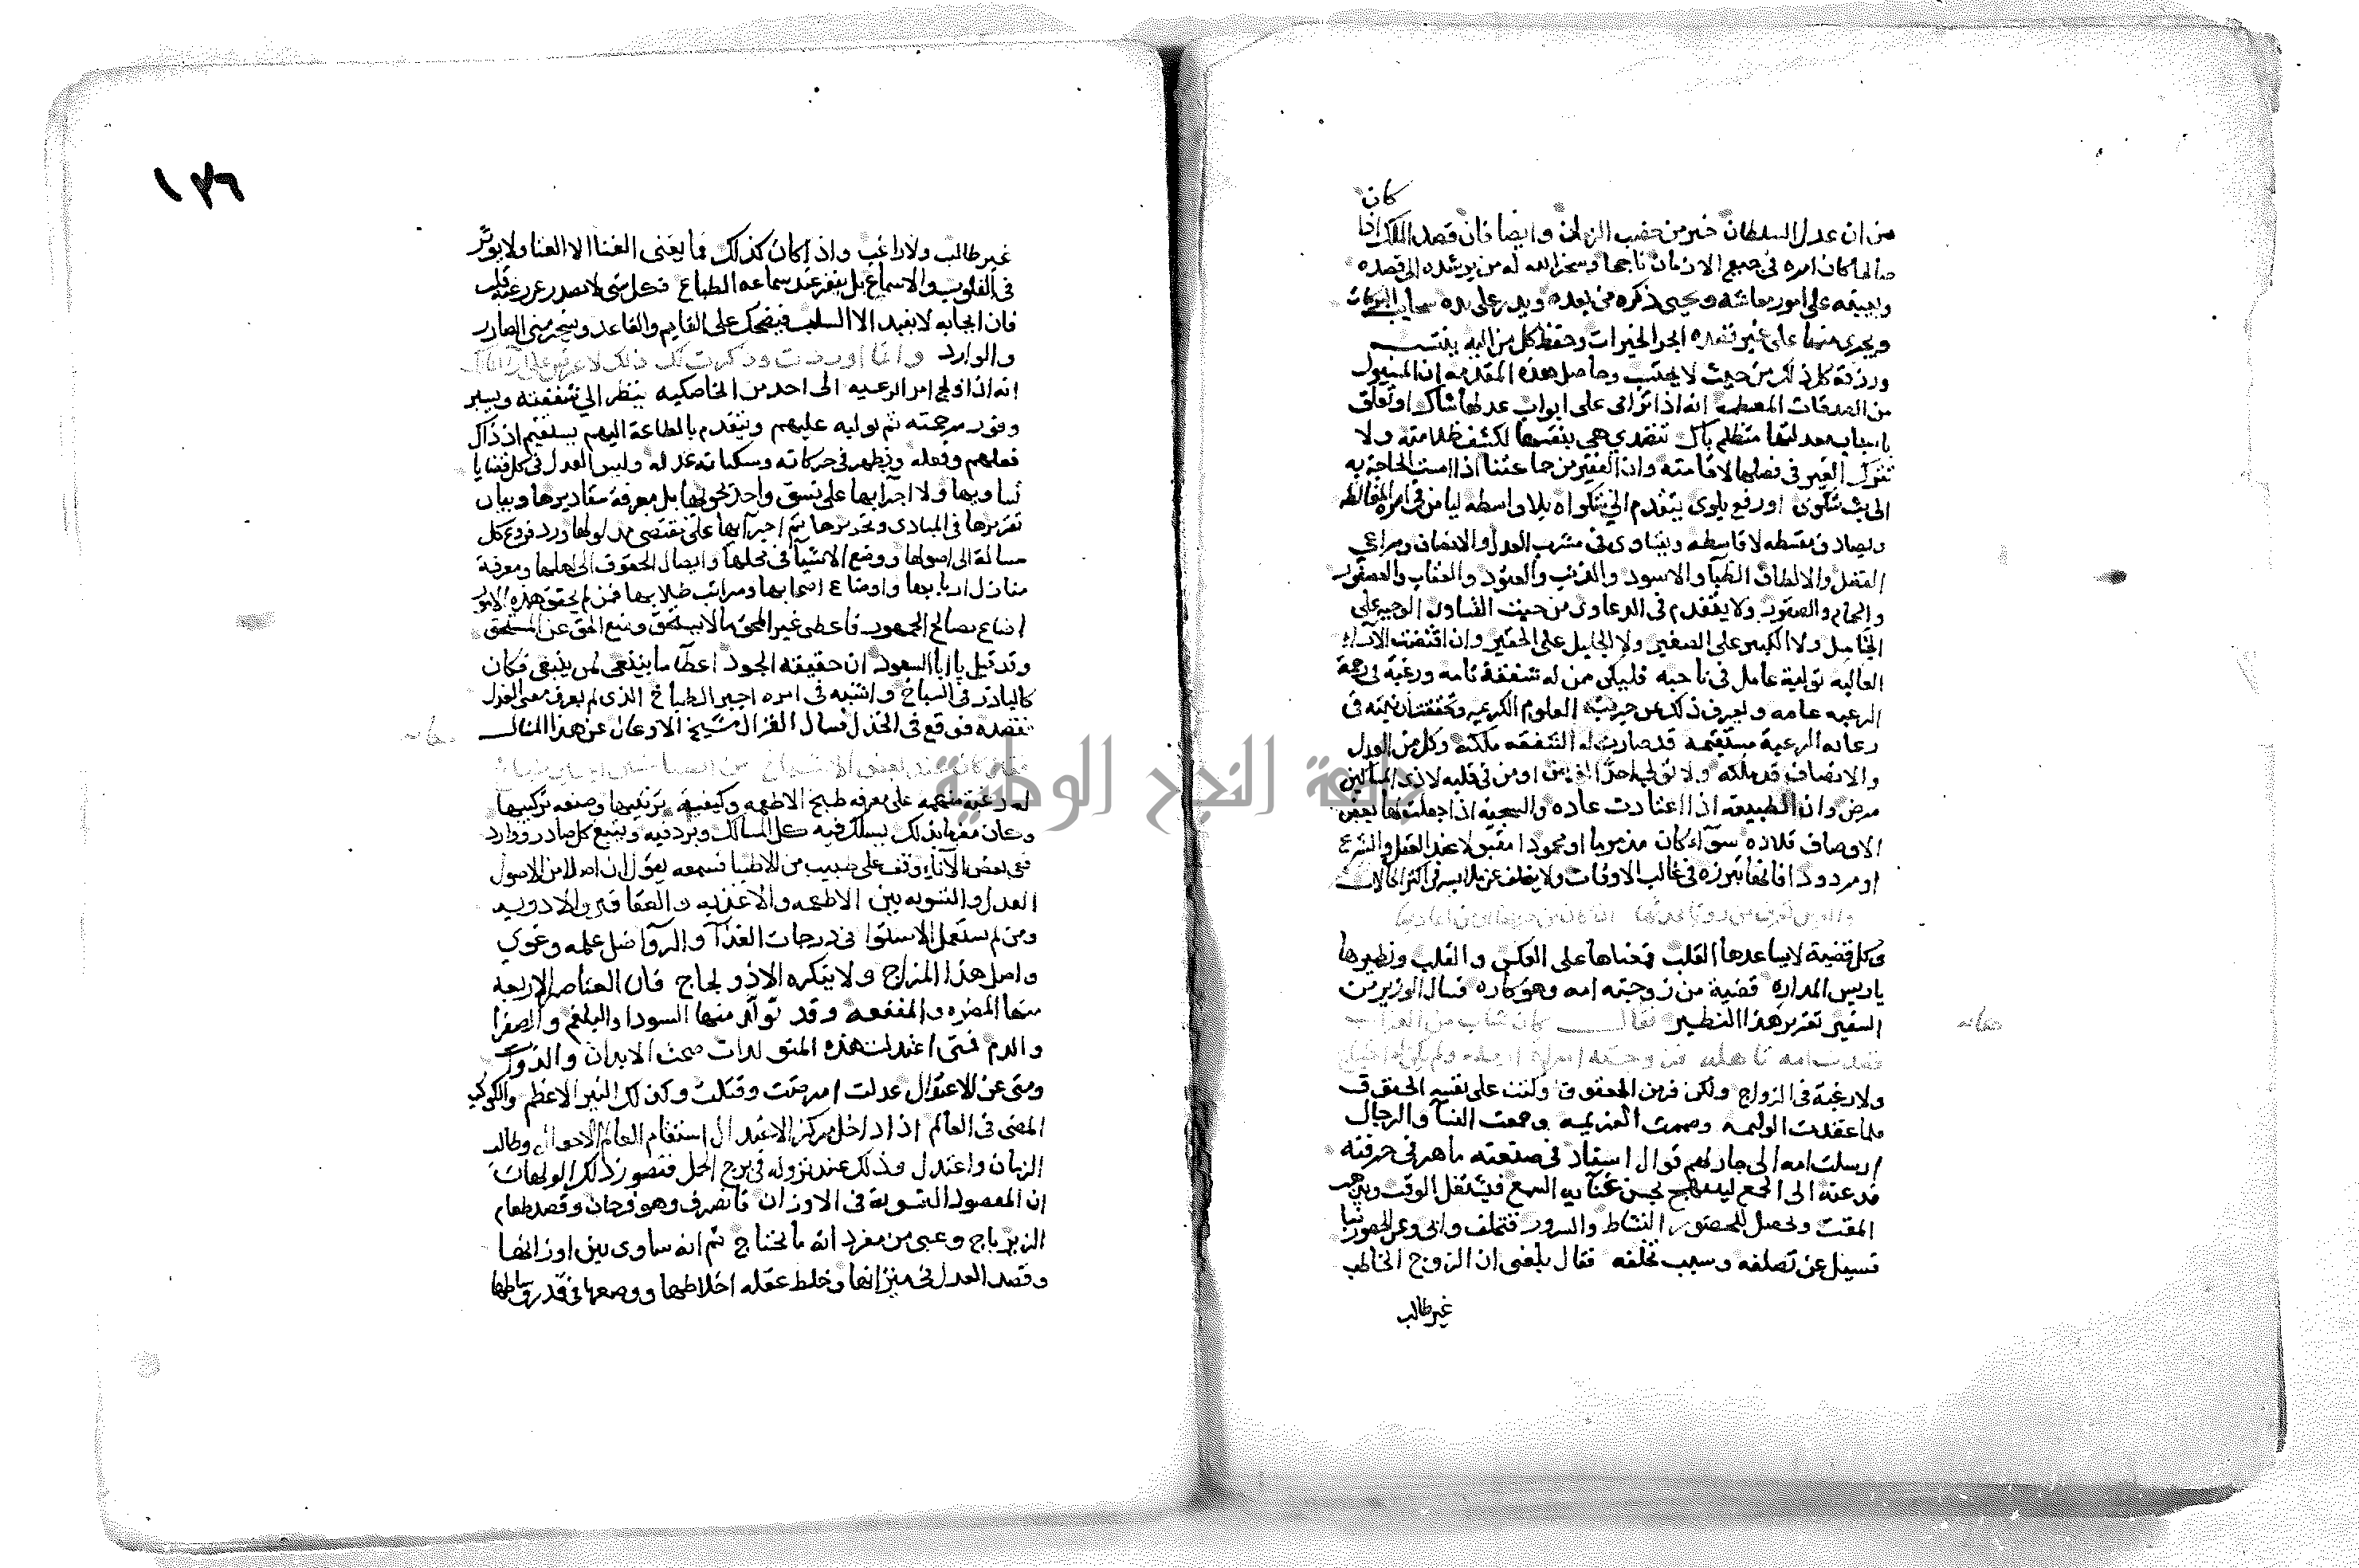 كان
من ان عدل السلطان خير من خصب الزمان وايضا فان قصد الملك اذا
صالحا كان امره في جميع الازمان ناجحا وسخر الله له من يرشده الى قصده
ويعينه على امور معاشه ويحيى ذكره من بعده ويدر على يده سحايب البركات
ويجرى منها على غير قصده ابحر الخيرات وحفظ كل من اليه ينتسب
ورزقه كل ذلك من حيث لا يحتسب وحاصل هذه المقدمه ان المسؤل
من الصدقات المعظمه انه اذا ترامى على ابواب عدلها شاك او تعلق
باسباب معدلتها متظلم باك تتصدي هي بنفسها لكشف ظلامته ولا
تتوكل الغير في فصلها لاقامته وان الفقير من جماعتنا اذا مست الحاجة به
الى بث شكوى او رفع بلوى يتقدم الي شكواه بلا واسطه ليامن في امره المغالطه
ويصادف مقسطه لا قاسطه ويتساوى في مشرب العدل والانصاف ومراعي
الفضل والالطاف الظبآ والاسود والذيب والعتود والعقاب والعصفور
والحمام والصقور ولا يتقدم في الدعاوى من حيث التساوى الوجيه على
الخامل ولا الكبير على الصغير ولا الجليل على الحقير وان اقتضت الآراء
العاليه تولية عامل في ناحيه فليكن ممن له شفقة تامه ورغبة في رحمة
الرعيه عامه وليعرف ذلك من جربته العلوم الكريمه وتحققت ان نيته في
رعاية الرعية مستقيمة قد صارت له الشفقه ملكه وكل من العدل
والانصاف قد ملكه ولا تولي احدا او من في قلبه لاذى المسالمين
مرض وان الطبيعه اذا اعتادت عاده والسجيه اذا جعلت لها بعض
الاوصاف قلاده سوآء كان مذموما او محمودا مقبولا عند العقل والشرع
او مردودا فانها تبرزه في غالب الاوقات ولا يتخلف عن ملابسه في اكثر الحالات
وكل قضية لا يساعدها القلب فمعناها على العكس والقلب ونظيرها
يا ريس المداره قضية من زوجته امه وهو كاره فسال الوزير من
السفير تقرير هذا النظير فقال كان شاب من العزاب
حكايه
قصدت امه تاهله فزوجته امراة ارمله ولم يكن له اختيار
ولا رغبة في الزواج ولكن فر من العقوق وكتب على نفسه الحقوق
فلما عقدت الوليمه وصممت العزيمه وجمعت النسآ والرجال
ارسلت امه الى جار لهم قوال استاد في صنعته ماهر في حرفته
فدعته الى الجمع ليبتهج بحسن غنآيه السمع فيشتغل الوقت ويذهب
المقت ويحصل للحضور النشاط والسرور فتخلف وابى وعن الحضور نبا
فسيل عن تصلفه وسبب تخلفه فقال بلغنى ان الزوج الخاطب
غير طالب
١٣٦
غير طالب ولا راغب واذا كان كذلك فما يغنى الغنا الا العنا ولا يوثر
في القلوب والاسماع بل ينفر عند سماعه الطباع فكل شى لا يصدر عن رغبة قلب
فان ايجابه لا يفيد الا السلب فيضحك على القايم والقاعد ويسخر منى الصادر
والوارد وانما اوردت وذكرت لك ذلك لاعرض على آرائك
انه اذا فوض امر الرعيه الى احد من الخاصكيه ينظر الي شفقته ويسبر
وفور مرحمته ثم توليه عليهم ويتقدم بالطاعة اليهم يستقيم اذ ذاك
فعلهم وفعله ويظهر في حركاته وسكناته عدله وليس العدل في كل قضايا
تساويها ولا اجرآيها على نسق واحد يحويها بل معرفة مقاديرها وبيان
تقريرها في المبادى وتحريرها ثم اجرآيها على مقتضى مدلولها ورد فروع كل
مسالة الى اصولها ووضع الاشيآ في محلها وايصال الحقوق الى اهلها ومعرفة
منازل اربابها واوضاع اصحابها ومراتب طلابها فمن لم يحقق هذه الامور
اضاع مصالح الجمهور فاعطى غير المحق مالا يستحق ومنع الحق عن المستحق
وقد قيل يا ابا السعود ان حقيقة الجود اعطآ ما ينبغى لمن ينبغى فكان
كالباذر في السباخ واشبه في امره اجير الطباخ الذى لم يعرف معنى العدل
بقصده فوقع في الخذل فسال الغزال مشيخ الاوعال عن هذا المثال
حكايه
فقال كان عند بعض
له رغبة متهمه على معرفه طبخ الاطعمه وكيفية ترتيبها وصنعه تركيبها
وكان مغرما بذلك يسلك فيه كل المسالك ويرد فيه ويتبع كل صادر ووارد
ففى بعض الآناء وقف على طبيب من الاطبا فسمعه يقول ان اصلا من الاصول
العدل والتسويه بين الاطعمه والاغذيه والعقاقير والادويه
ومن لم يستعمل الاستوا فى درجات الغذآ والدوآ ضل علمه وغوى
واصل هذا المزاج ولا ينكره الا ذو لجاج فان العناصر الاربعة
منها المضره والمنفعه وقد تولد منها السودا والبلغم والصفرا
والدم فمتى اعتدلت هذه المتولدات صحت الابدان والذوات
ومتى عن الاعتدال عدلت امرضت وقتلت وكذلك النير الاعظم والكوكب
المضى فى العالم اذا دخل مركز الاعتدال استقام العالم الاحوال وطاب
الزمان واعتدل وذلك عند نزوله في برج الحمل فتصور ذلك الولهان
ان المقصود التسوية فى الاوزان فانصرف وهو فرحان وقصد طعام
الزيرباج وعبى من مفرداته ما يحتاج ثم انه ساوى بين اوزانها
وقصد العدل في ميزانها وخلط عقله اخلاطها ووضعها في قدر وساطها
جامعة النجاح الوطنية